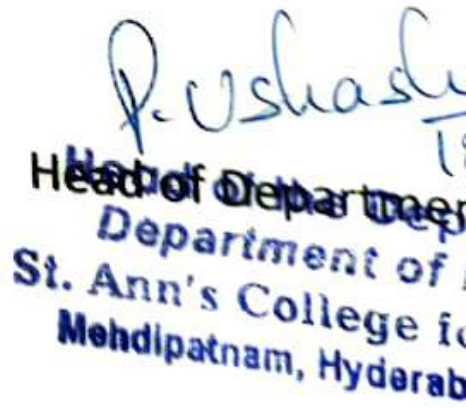 P. Ushash
Head of Departmen
Head of the Dep
Department of
St. Ann's College fo
Mehdipatnam, Hyderab